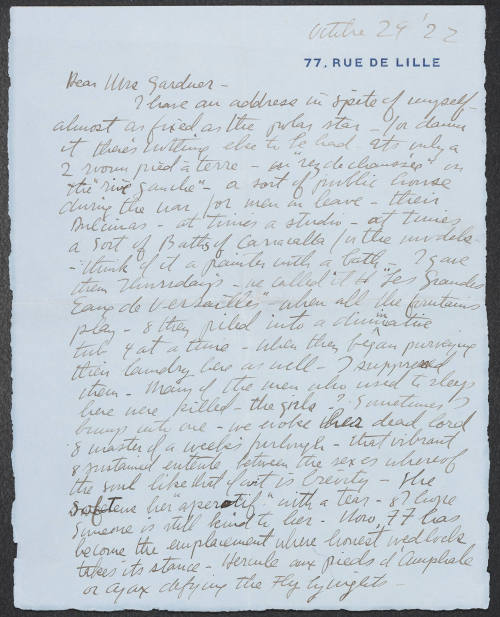 Octobre 29 '22
77, RUE DE LILLE
Dear Mrs Gardner -
I have an address in spite of myself
almost as fixed as the polar star - for damn
it there's nothing else to be had. Its only a
2 room pied à terre - in "rez de chaussée" on
the "rive gauche" - a sort of public house
during the war for men on leave - their
- at times a studio - at times
a sort of Baths of Caracalla for the models
- think of it a painter with a bath - I gave
them Thursdays - we called it "Les Grandes
Eaux de Versailles" when all the fountains
play - & they piled into a diminative
tub 4 at a time - when they began purveying
their laundry here as well - I suppressed
them - Many of the men who used to sleep
here were killed - the girls - ? Sometimes I
bump into one - we evoke her dead lord
& master of a week's furlough - that vibrant
& sustained entente between the sexes whereof
the soul like that of wit is brevity - She
softens her "aperitif" with a tear - & I hope
someone is still kind to her - Now, 77 has
become the emplacement where honest wedlock
takes its stance - Hercule aux pieds d'Omphale
or Ajax defying the